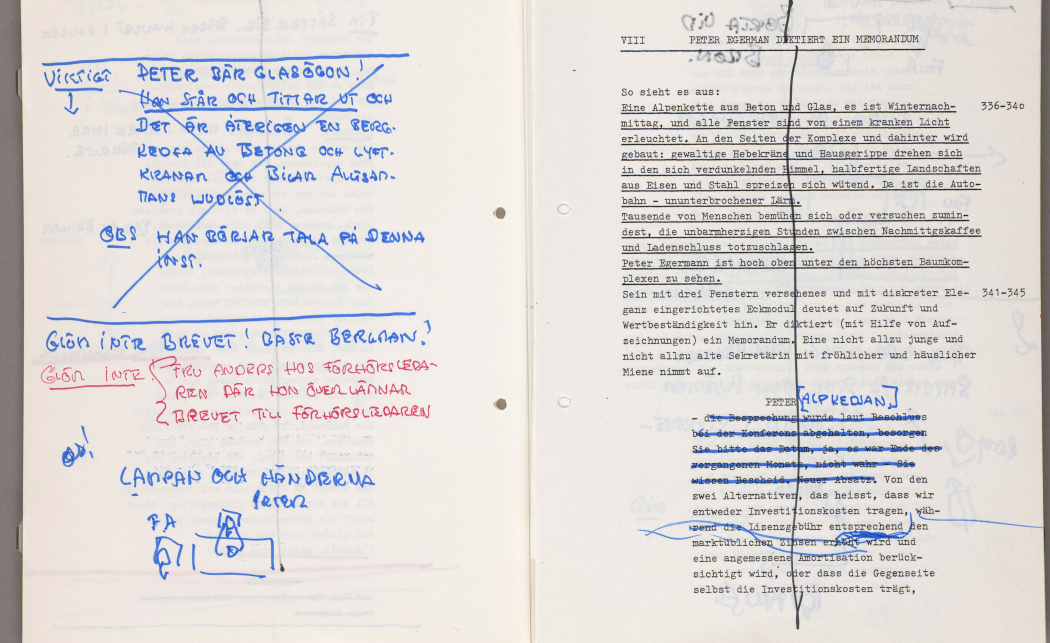 VIKTIGT PETER BÄR GLASÖGON!
HAN STÅR OCH TITTAR UT OCH
DET ÄR ÅTERIGEN EN BERG-
KEDJA AV BETONG OCH LYFT-
KRANAR OCH BILAR ALLSAM-
MANS LJUDLÖST
OBS HAN BÖRJAR TALA PÅ DENNA
INST.
GLÖM INTE BREVET! BÄSTE BERGMAN!
GLÖM INTE! FRU ANDERS HOS FÖRHÖRSLEDA-
REN DÄR HON ÖVERLÄMNAR
BREVET TILL FÖRHÖRSLEDAREN
LAMPAN OCH HÄNDERNA
PETER
FA
VIII PETER EGERMAN DIKTIERT EIN MEMORANDUM
So sieht es aus:
Eine Alpenkette aus Beton und Glas, es ist Winternach- 336-340
mittag, und alle Fenster sind von einem kranken Licht
erleuchtet. An den Seiten der Komplexe und dahinter wird
gebaut: gewaltige Hebekräne und Hausgerippe drehen sich
in den sich verdunkelnden Himmel, halbfertige Landschaften
aus Eisen und Stahl spreizen sich wütend. Da ist die Auto-
bahn - ununterbrochener Lärm.
Tausende von Menschen bemühen sich oder versuchen zumin-
dest, die unbarmherzigen Stunden zwischen Nachmittgskaffee
und Ladenschluss totzuschlagen.
Peter Egermann ist hoch oben unter den höchsten Baumkom-
plexen zu sehen.
Sein mit drei Fenstern versehenes und mit diskreter Ele- 341-345
ganz eingerichtetes Eckmodul deutet auf Zukunft und
Wertbeständigkeit hin. Er diktiert (mit Hilfe von Auf-
zeichnungen) ein Memorandum. Eine nicht allzu junge und
nicht allzu alte Sekretärin mit fröhlicher und häuslicher
Miene nimmt auf.
PETER [ALPKEDJAN.]
- die Besprechung wurde laut Beschluss
bei der Konferenz abgehalten, besorgen
Sie bitte das Datum, ja, es war Ende des
vergangenen Monats, nicht wahr - Sie
wissen Bescheid. Neuer Absatz. Von den
zwei Alternativen, das heisst, dass wir
entweder Investitionskosten tragen, wäh-
rend die Lizenzgebühr entsprechend den
marktüblichen Zinsen erhöht wird und
eine angemessene Amortisation berück-
sichtigt wird, oder dass die Gegenseite
selbst die Investitionskosten trägt,